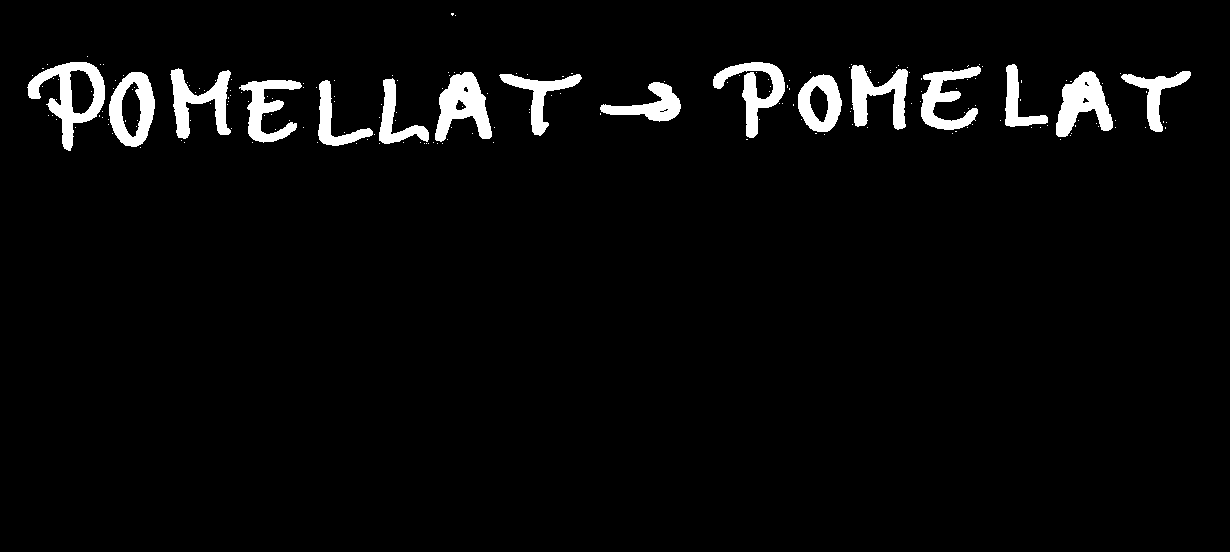 POMELLAT → POMELAT